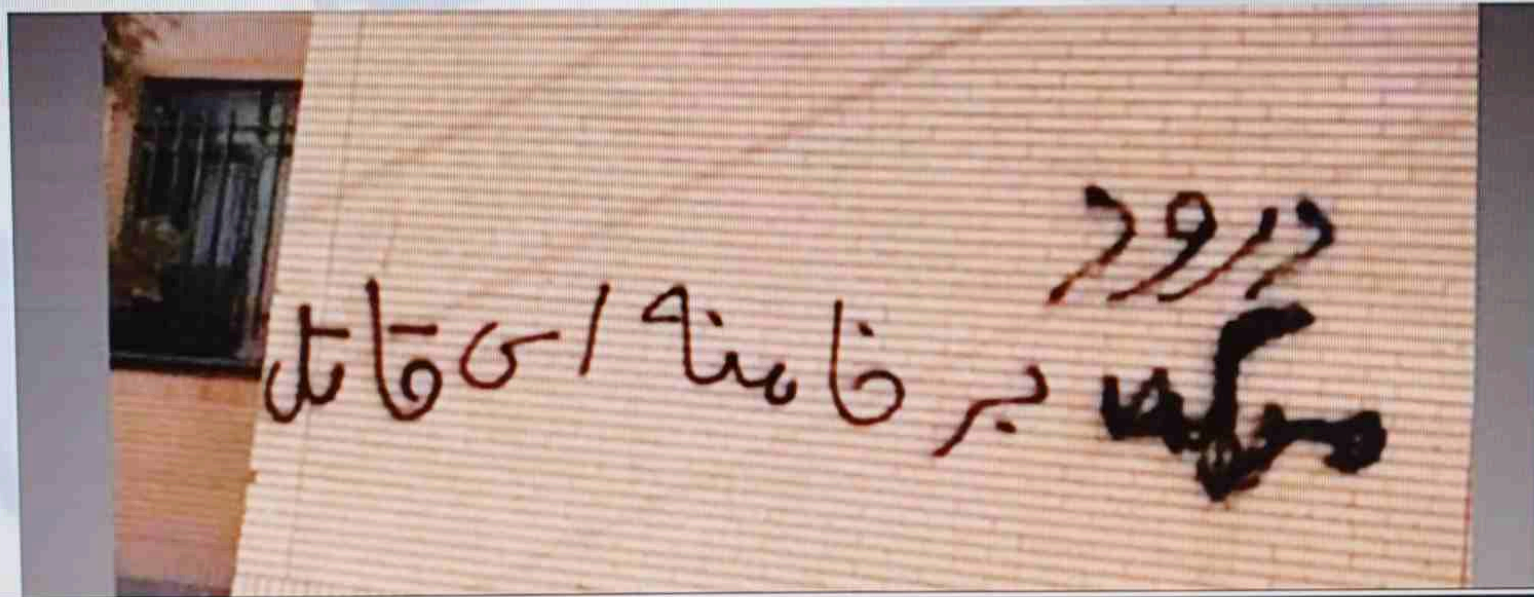 درود
بر خامنه ای قاتل